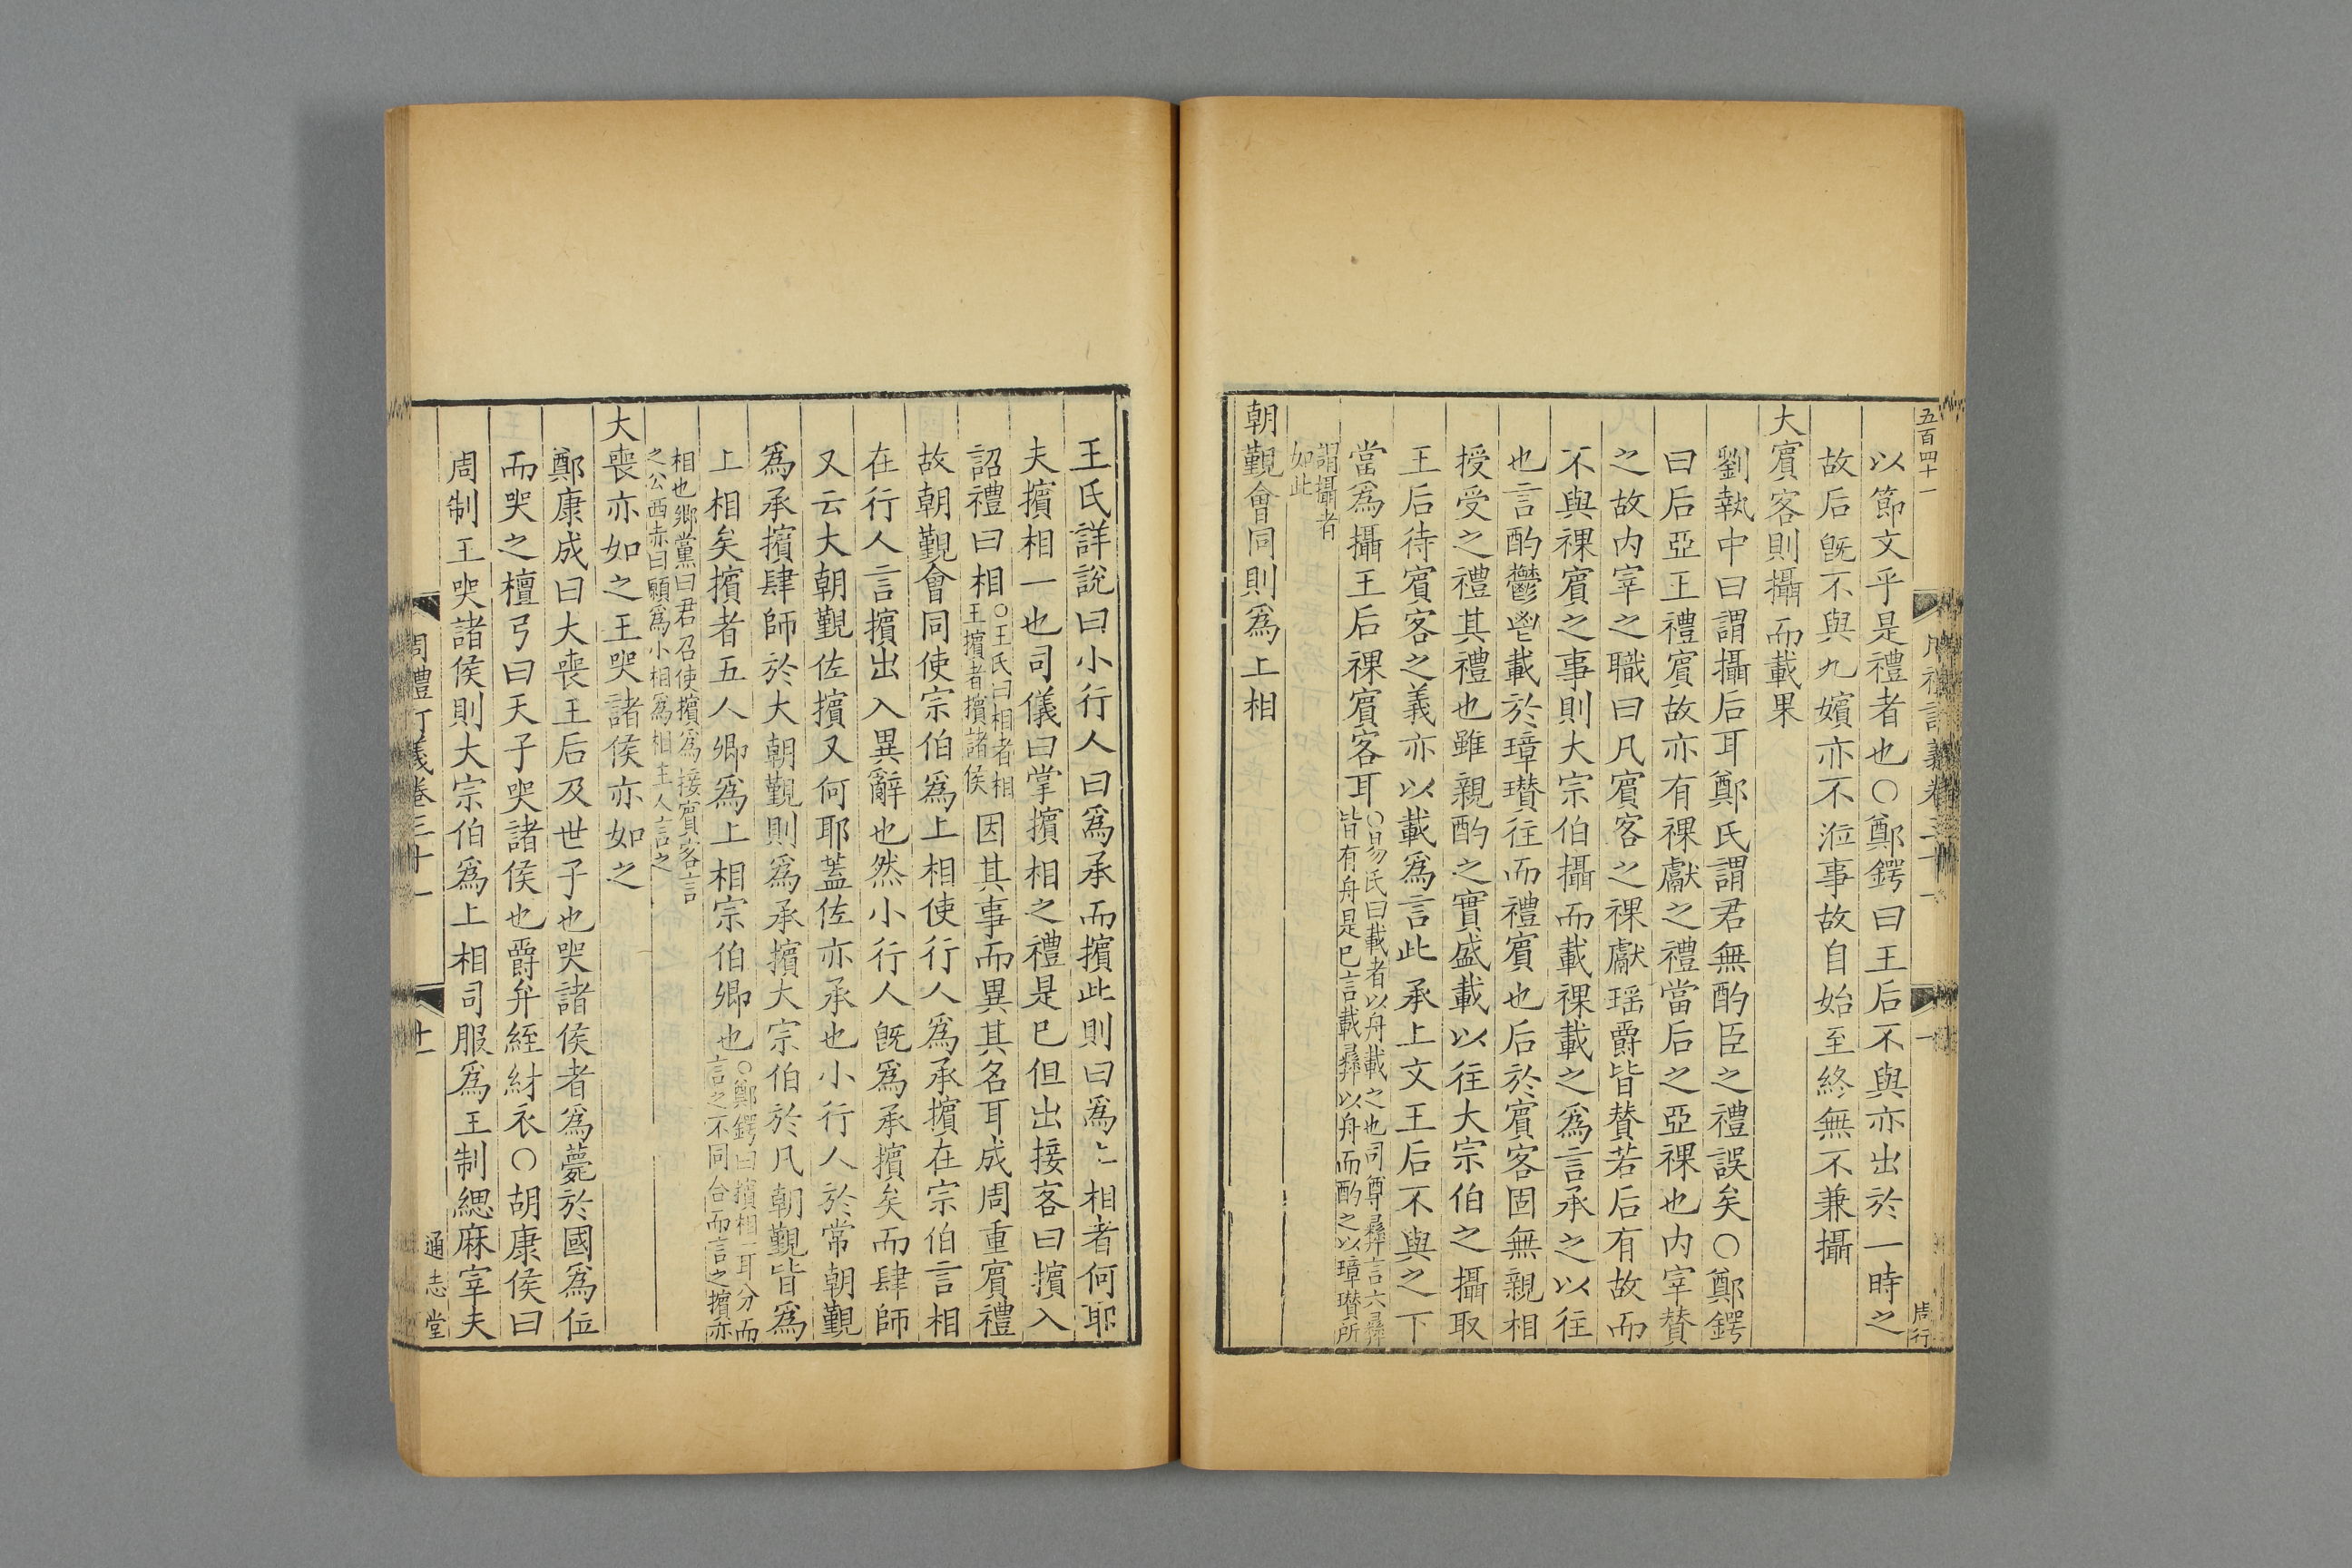 五百四十一
周禮訂義卷三十一
周行
以節文乎是禮者也○鄭鍔曰王后不與亦出於一時之
故后旣不與九嬪亦不涖事故自始至終無不兼攝
大賔客則攝而載果
劉執中曰謂攝后耳鄭氏謂君無酌臣之禮誤矣○鄭鍔
曰后亞王禮賔故亦有祼獻之禮當后之亞祼也内宰賛
之故内宰之職曰凡賔客之祼獻瑶爵皆賛若后有故而
不與祼賔之事則大宗伯攝而載祼載之爲言承之以往
也言酌鬱鬯載於璋瓚往而禮賔也后於賔客固無親相
授受之禮其禮也雖親酌之實盛載以往大宗伯之攝取
王后待賔客之義亦以載爲言此承上文王后不與之下
當爲攝王后祼賔客耳○易氏曰載者以舟載之也司尊彛言六彛
皆有舟是已言載彛以舟而酌之以璋瓚所
謂攝者
如此
朝覲會同則爲上相
王氏詳說曰小行人曰爲承而擯此則曰爲上相者何耶
夫擯相一也司儀曰掌擯相之禮是已但出接客曰擯入
詔禮曰相○王氏曰相者相
王擯者擯諸侯因其事而異其名耳成周重賔禮
故朝覲會同使宗伯爲上相使行人爲承擯在宗伯言相
在行人言擯出入異辭也然小行人旣爲承擯矣而肆師
又云大朝覲佐擯又何耶蓋佐亦承也小行人於常朝覲
爲承擯肆師於大朝覲則爲承擯大宗伯於凡朝覲皆爲
上相矣擯者五人卿爲上相宗伯卿也○鄭鍔曰擯相一耳分而
言之不同合而言之擯亦
相也郷黨曰君召使擯爲接賔客言
之公西赤曰願爲小相爲相主人言之
大喪亦如之王哭諸侯亦如之
鄭康成曰大喪王后及世子也哭諸侯者爲薨於國爲位
而哭之檀弓曰天子哭諸侯也爵弁絰紂衣○胡康侯曰
周制王哭諸侯則大宗伯爲上相司服爲王制緦麻宰夫
周禮訂義卷三十一
十一
通志堂